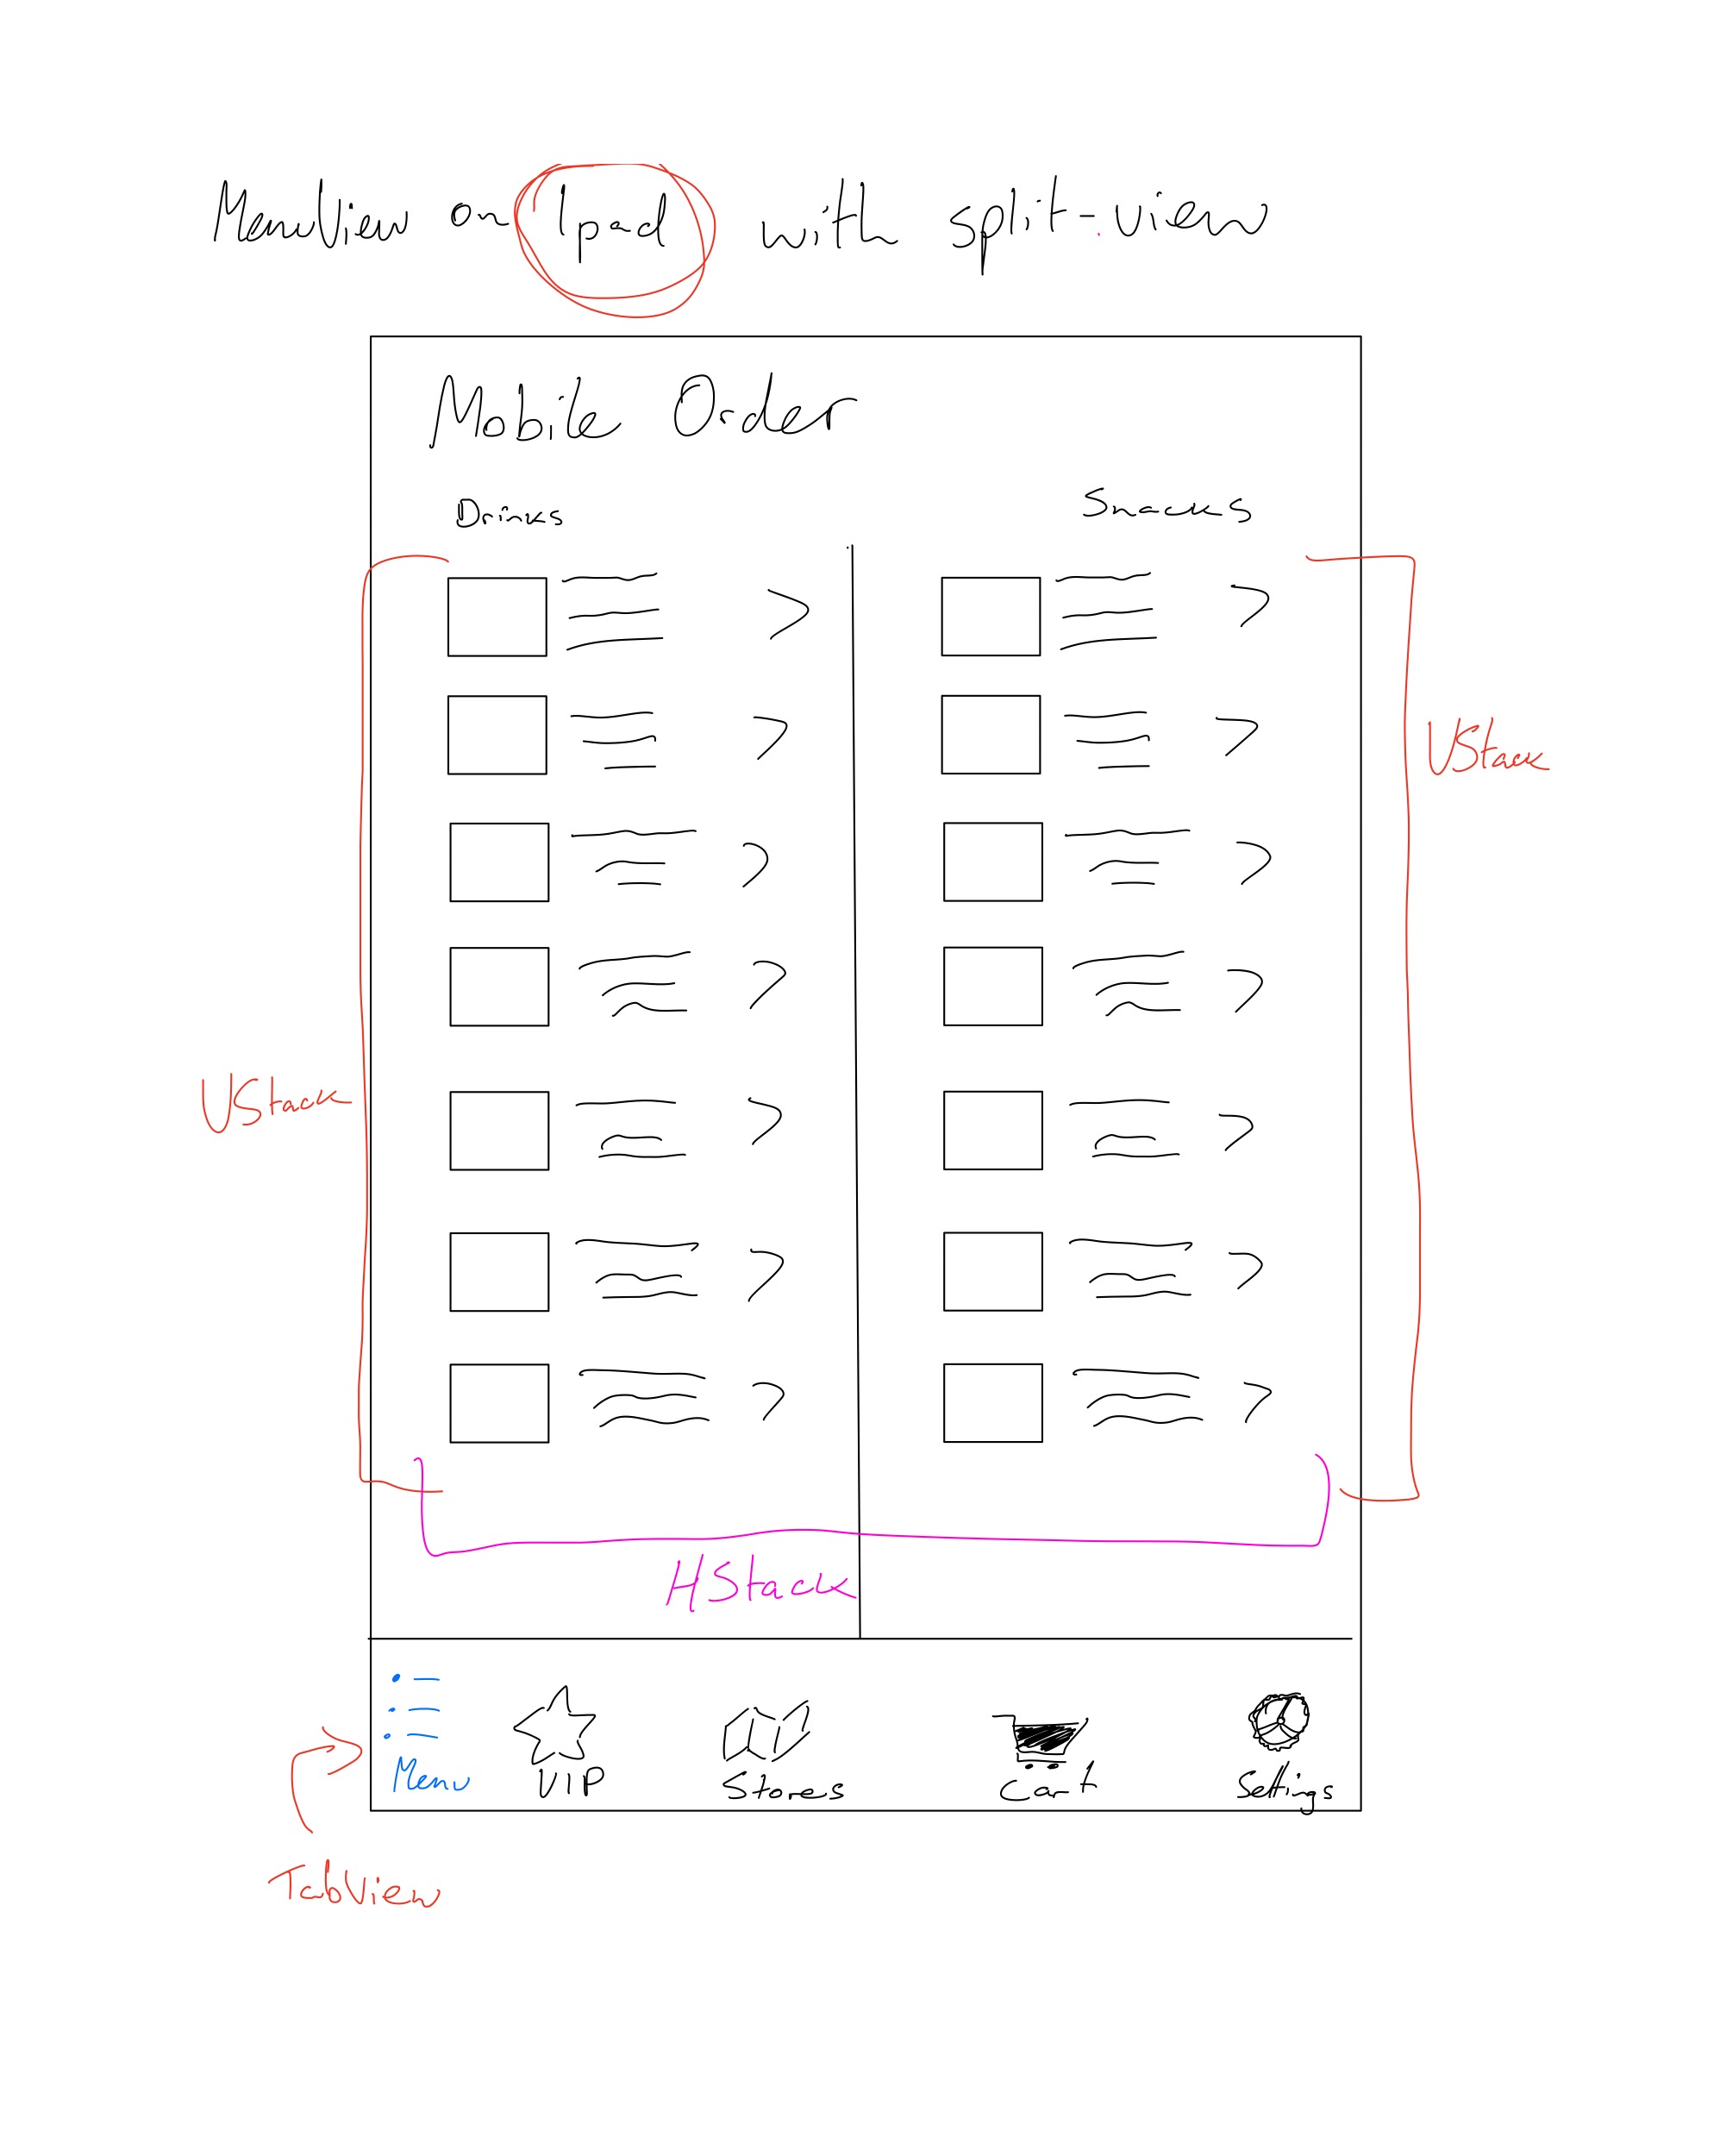 MenuView on Ipad with split-view
Mobile Order
Drinks
Snacks
VStack
VStack
HStack
Menu
VIP
Stores
Cart
Settings
TabView